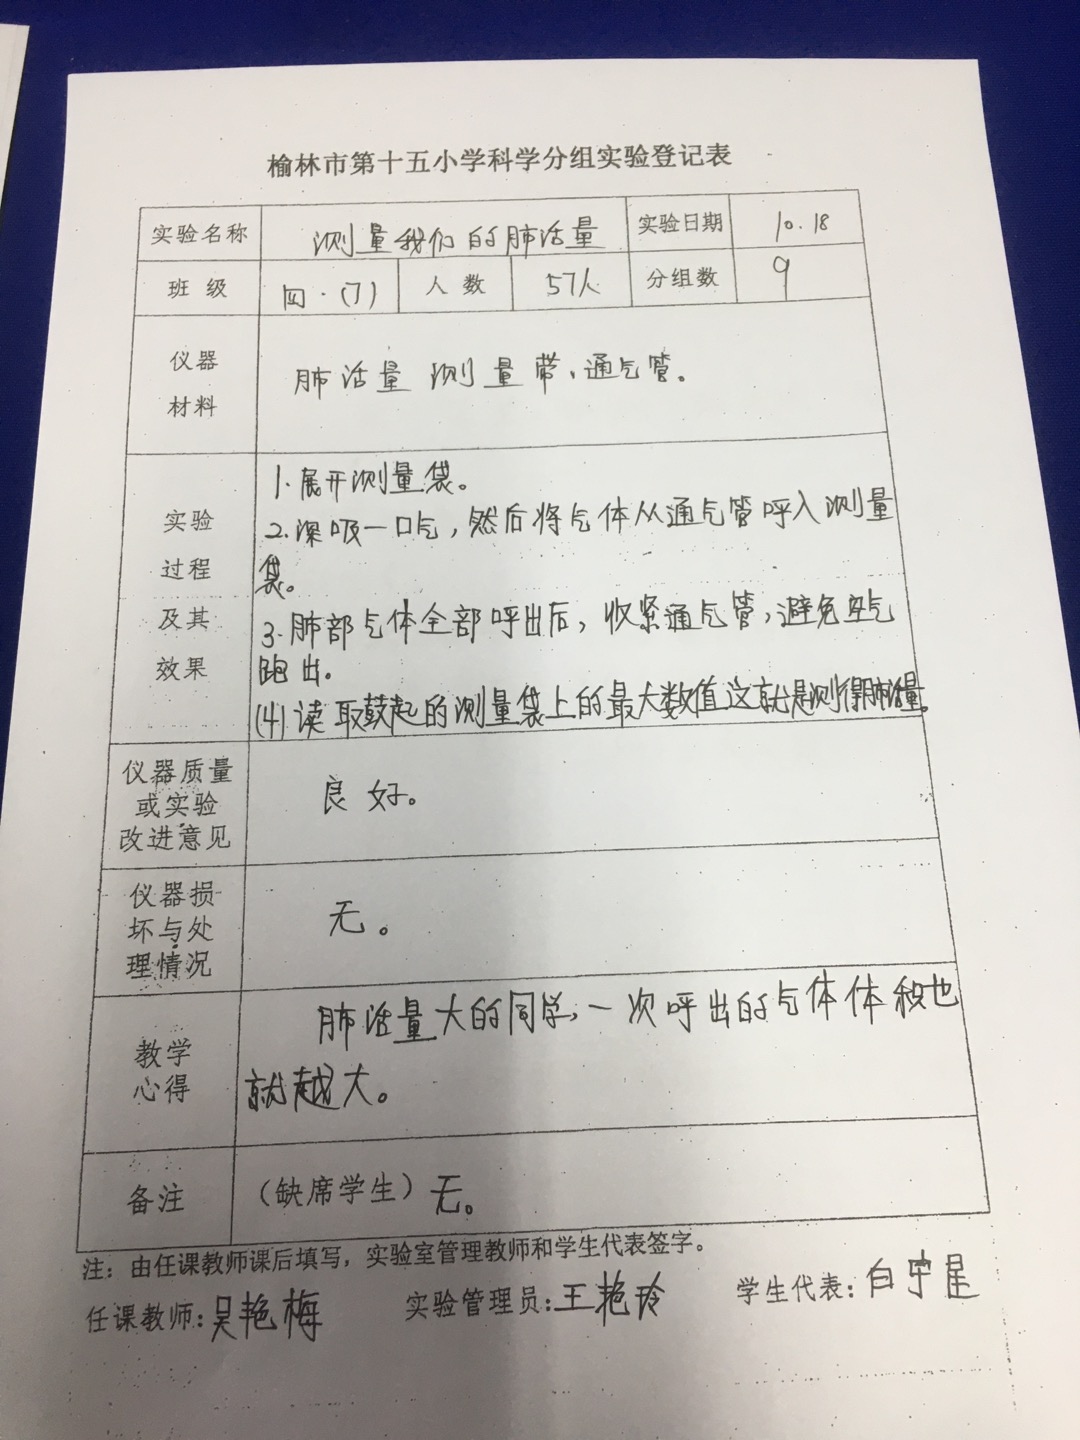 榆林市第十五小学科学分组实验登记表
实验名称 测量我们的肺活量 实验日期 10.18
班 级 四·(7) 人 数 57人 分组数 9
仪器
材料
肺活量 测量带、通气管。
实验
过程
及其
效果
1.展开测量袋。
2.深吸一口气,然后将气体从通气管呼入测量
袋。
3.肺部气体全部呼出后,收紧通气管,避免空气
跑出。
(4)读取鼓起的测量袋上的最大数值这就是测得肺活量。
仪器质量
或实验
改进意见
良好。
仪器损
坏与处
理情况
无。
教学
心得
肺活量大的同学,一次呼出的气体体积也
就越大。
备注 (缺席学生)无。
注:由任课教师课后填写,实验室管理教师和学生代表签字。
任课教师:吴艳梅 实验管理员:王艳玲 学生代表:白宇星